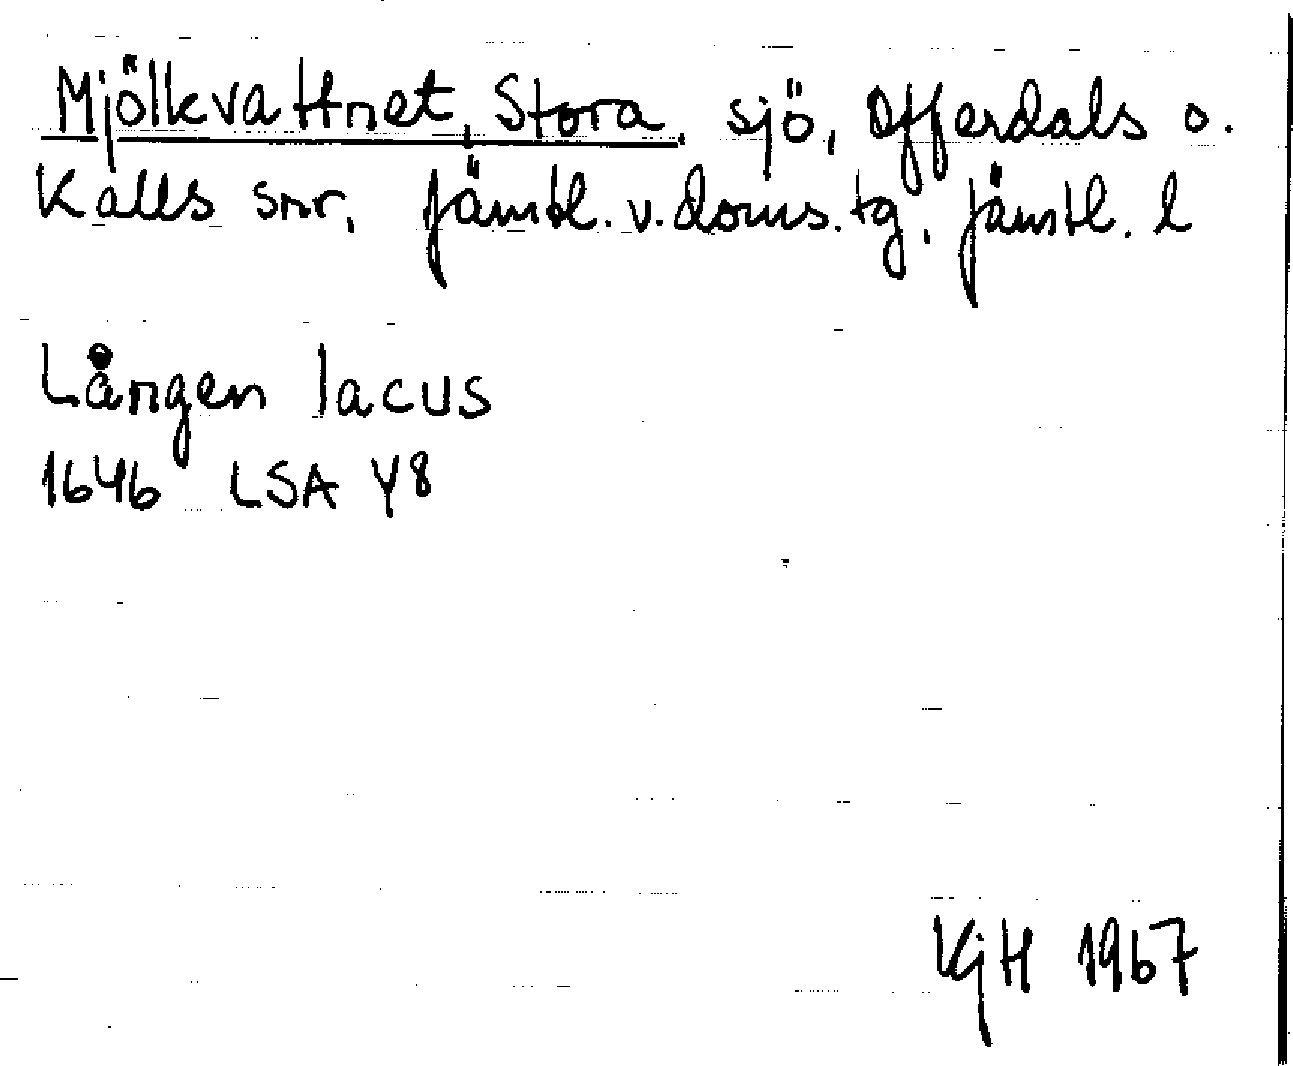 Mjölkvattnet, Stora, sjö, Offerdals o.
Kalls snr, Jämtl. v. doms. tg, Jämtl. l
Lången lacus
1646 LSA Y8
KjH 1967